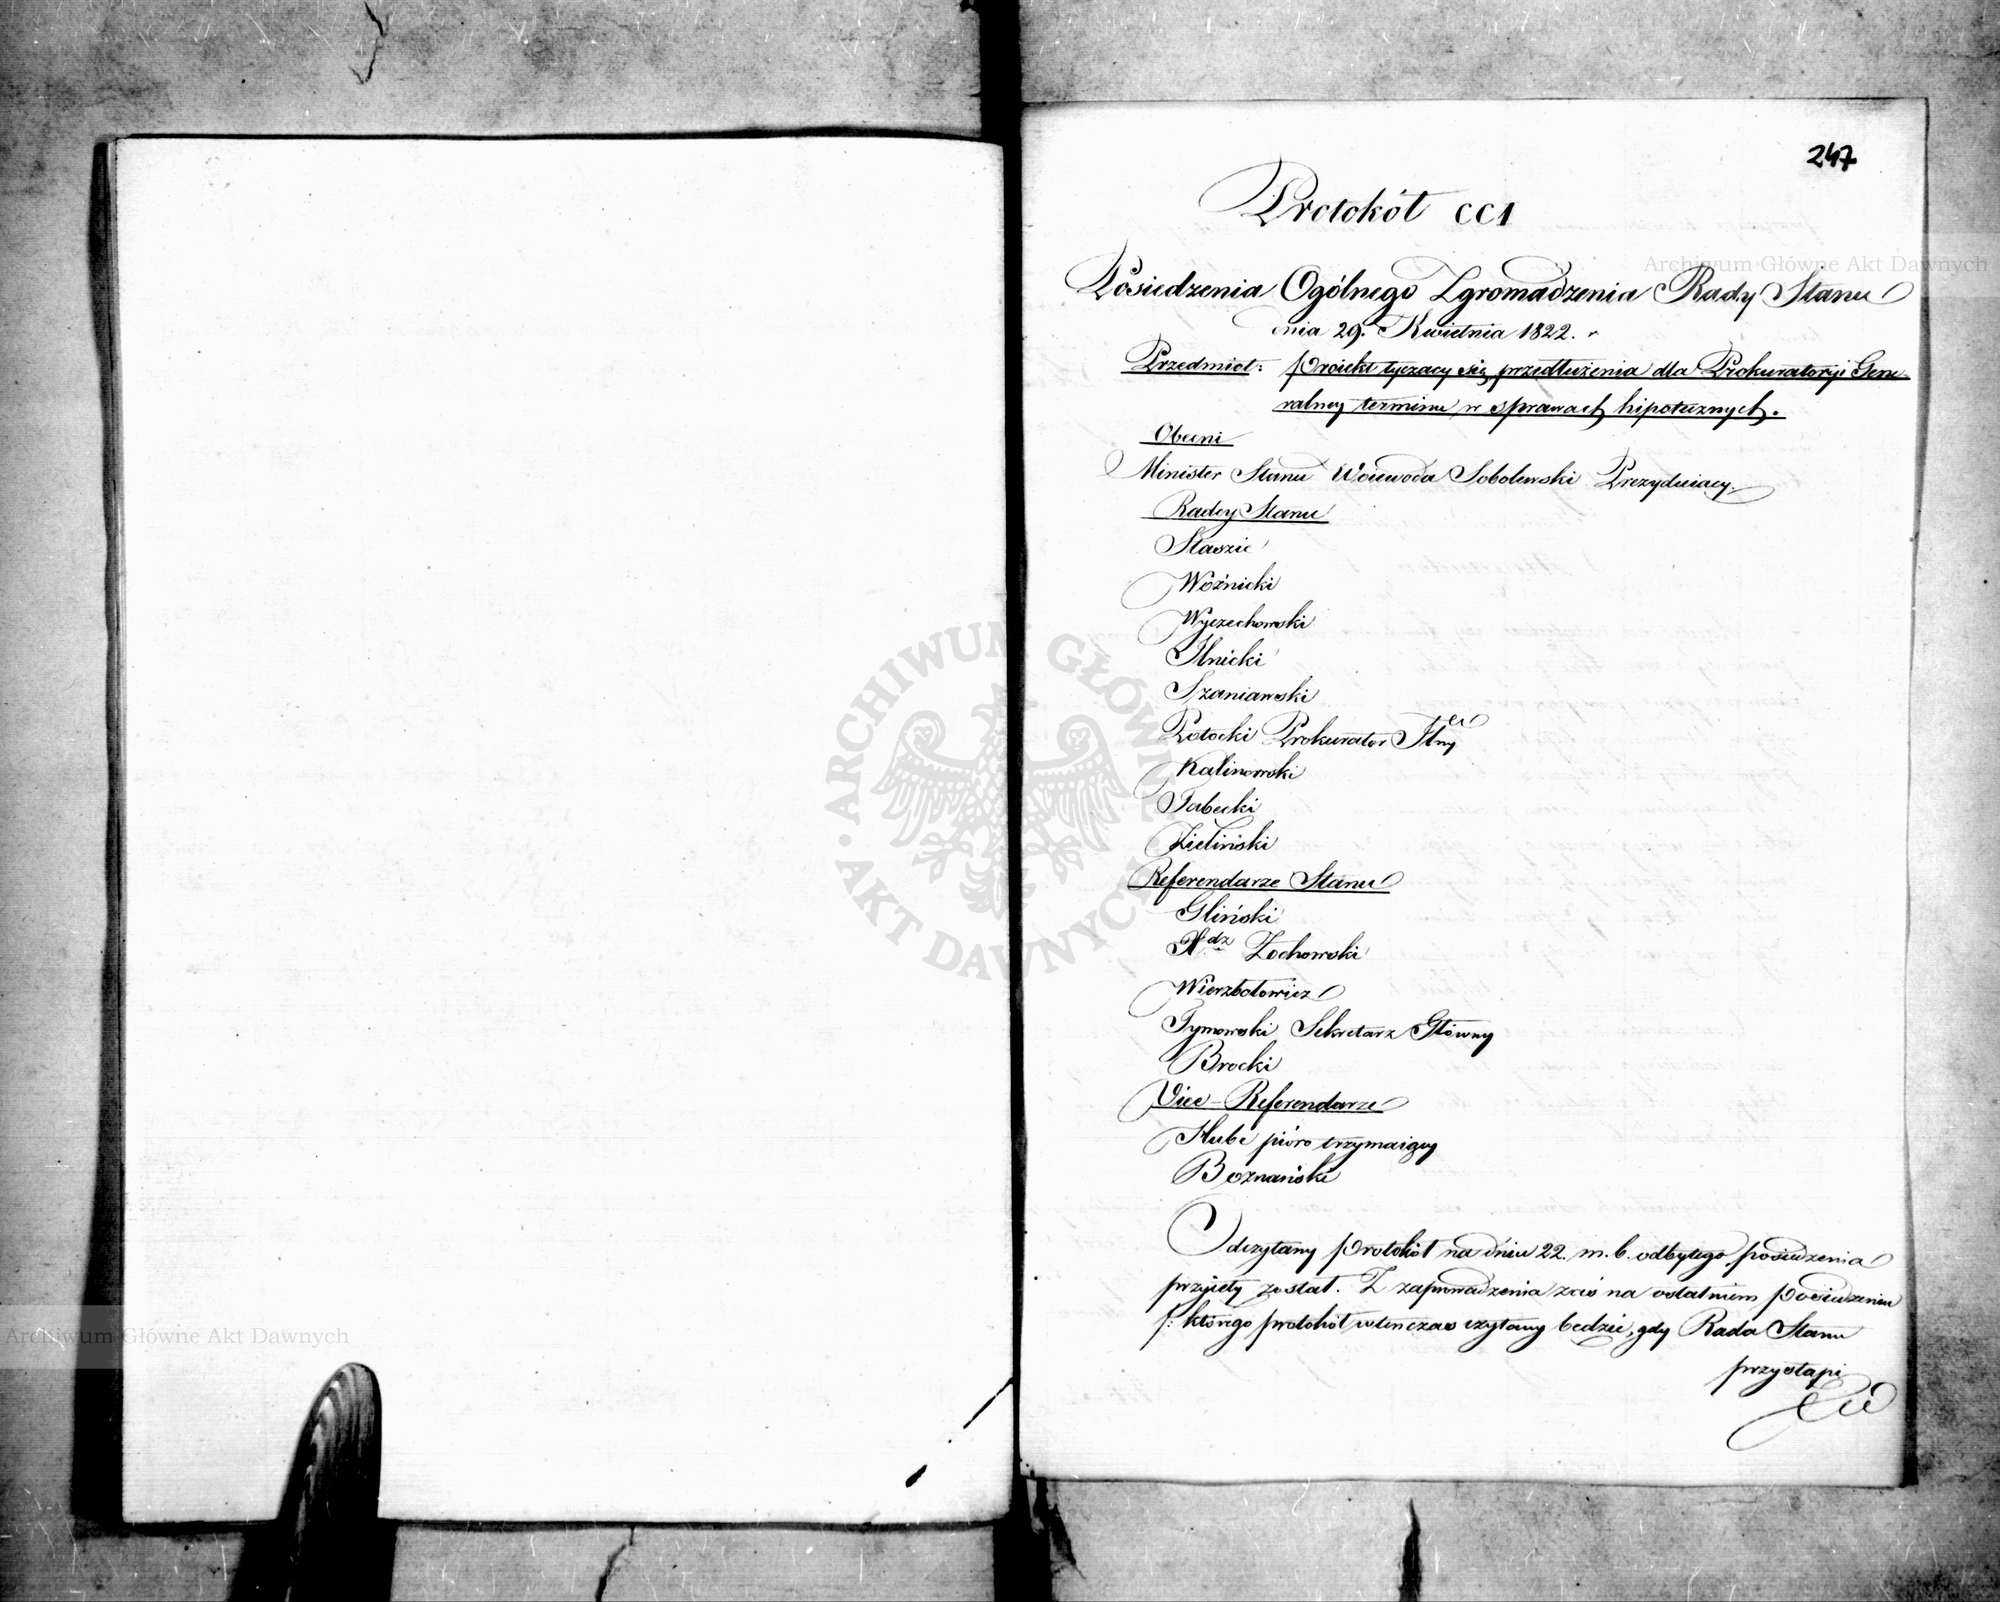 247
Protokół CC1
Posiedzenia Ogólnego Zgromadzenia Rady Stanu
dnia 29. Kwietnia 1822. r
Przedmiot: Proiekt tyczący się przedłużenia dla Prokuratoryi Gene
ralney terminu w sprawach hipotecznych.
Obecni
Minister Stanu Woiewoda Sobolewski Prezyduiący.
Radcy Stanu
Staszic
Woźnicki
Wyczechowski
Ilnicki
Szaniawski
Potocki Prokurator
Kalinowski
Tabecki
Zieliński
Referendarze Stanu
Gliński
Xdz Żochowski
Wierzbołowicz
Tymowski Sekretarz Główny
Brocki
Vice-Referendarze
Hube pióro trzymaiący
Boznański
Odczytany Protokół na dniu 22. m. b. odbytego posiedzenia
przyięty został. Z zaprowadzenia zaś na ostatniem posiedzeniu
/: którego protokół wtenczas czytany będzie, gdy Rada Stanu
przystąpi
Archiwum Główne Akt Dawnych
Archiwum Główne Akt Dawnych
ARCHIWUM GŁÓWNE AKT DAWNYCH